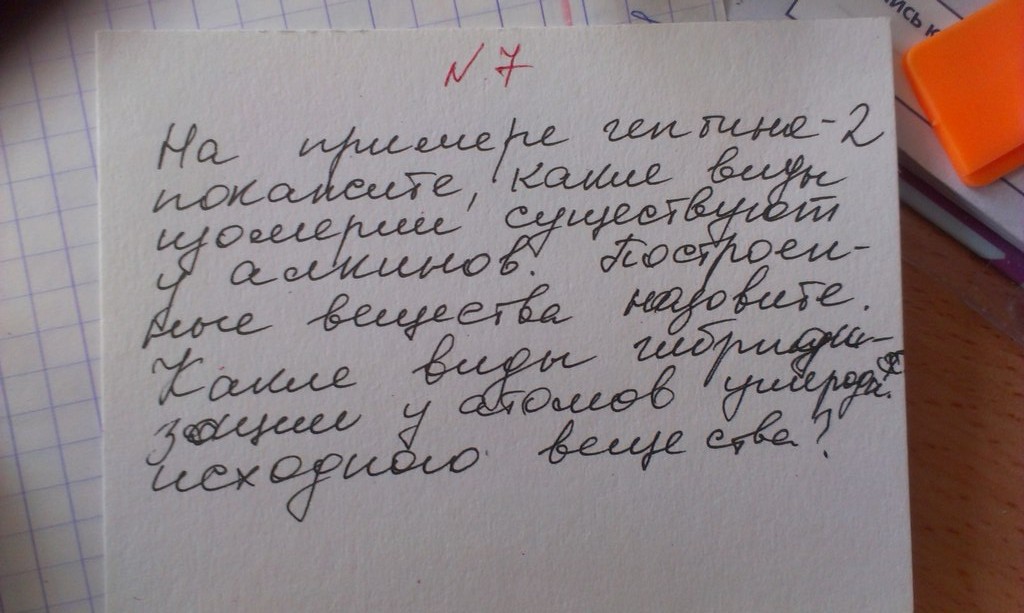 ись к
N 7
На примере гептина-2
покажите, какие виды
изомерии существуют
у алкинов. Построен-
ные вещества назовите.
Какие виды гибриди-
зации у атомов углерода
исходного вещества?